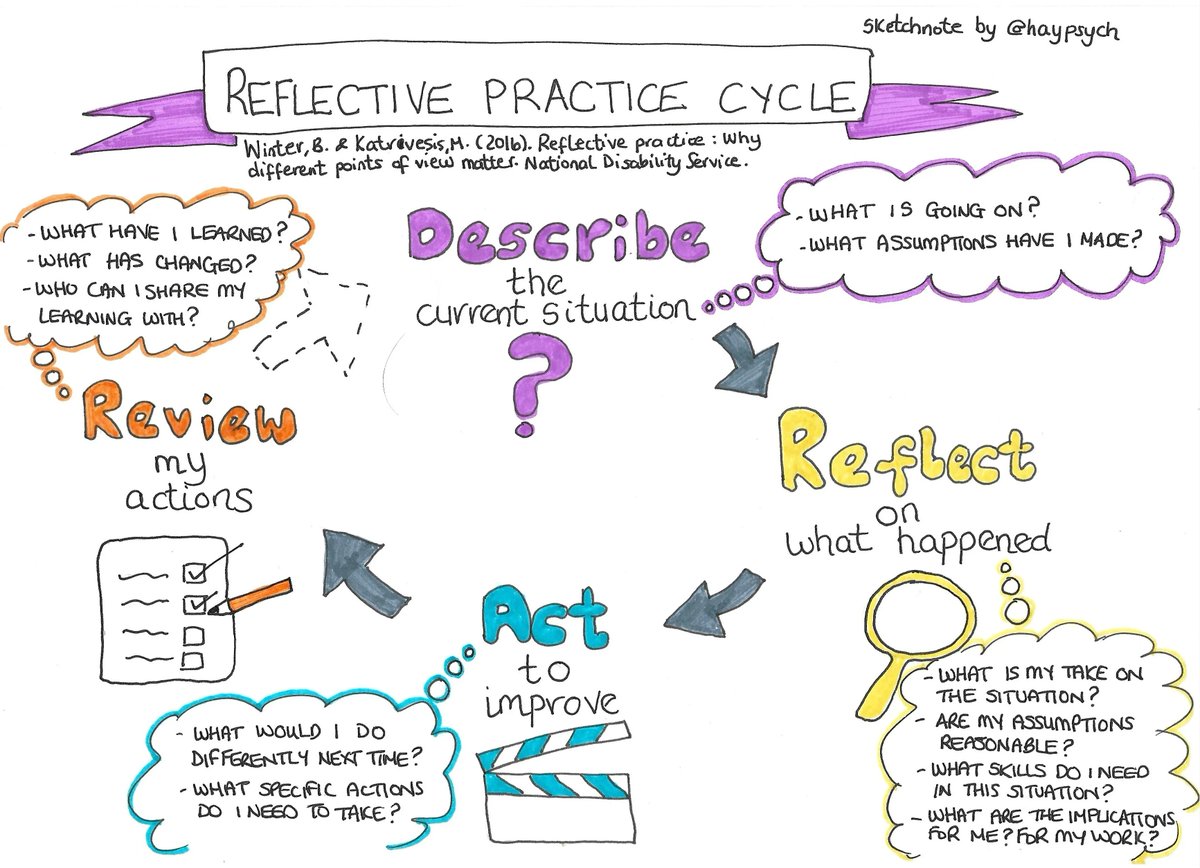 Sketchnote by @haypsych
REFLECTIVE PRACTICE CYCLE
Winter, B. & Katrivesis, M. (2016). Reflective practice : Why
different points of view matter. National Disability Service.
Describe
the
current situation
?
- WHAT IS GOING ON?
- WHAT ASSUMPTIONS HAVE I MADE?
Reflect
on
what happened
- WHAT IS MY TAKE ON
THE SITUATION?
- ARE MY ASSUMPTIONS
REASONABLE?
- WHAT SKILLS DO I NEED
IN THIS SITUATION?
- WHAT ARE THE IMPLICATIONS
FOR ME? FOR MY WORK?
Act
to
improve
- WHAT WOULD I DO
DIFFERENTLY NEXT TIME?
- WHAT SPECIFIC ACTIONS
DO I NEED TO TAKE?
Review
my
actions
- WHAT HAVE I LEARNED?
- WHAT HAS CHANGED?
- WHO CAN I SHARE MY
LEARNING WITH?